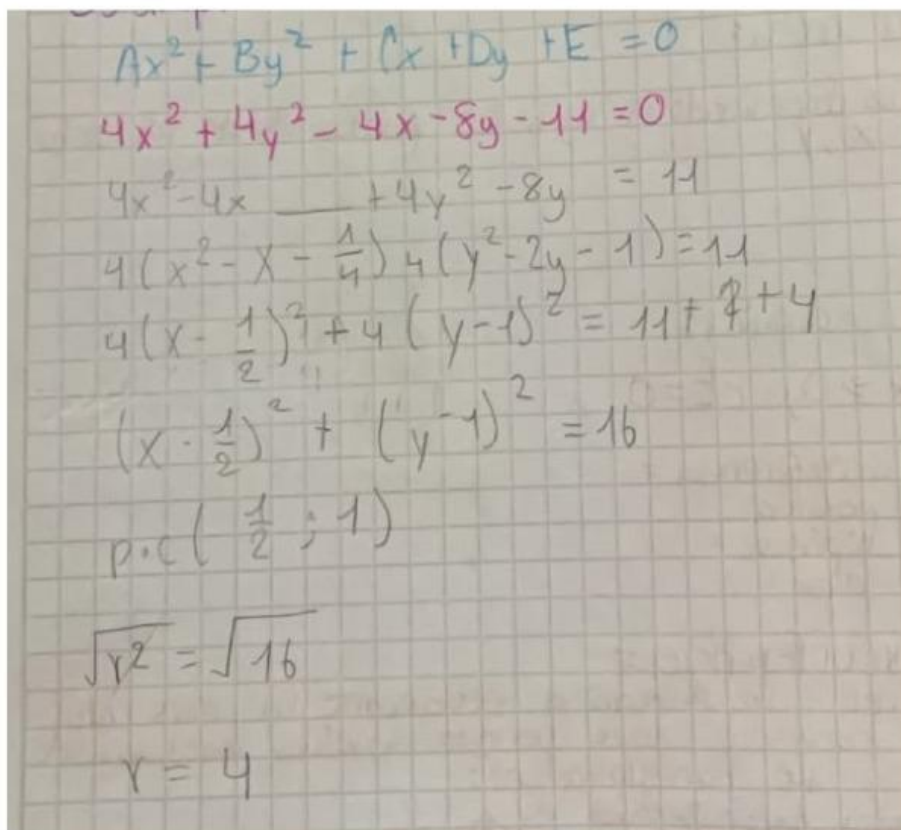 Ax² + By² + Cx + Dy + E = 0
4x² + 4y² - 4x - 8y - 11 = 0
4x² - 4x ___ + 4y² - 8y = 11
4(x² - x - 1/4) 4(y² - 2y - 1) = 11
4(x - 1/2)² + 4(y - 1)² = 11 + 1 + 4
(x - 1/2)² + (y - 1)² = 16
p.c(1/2 ; 1)
√r² = √16
r = 4